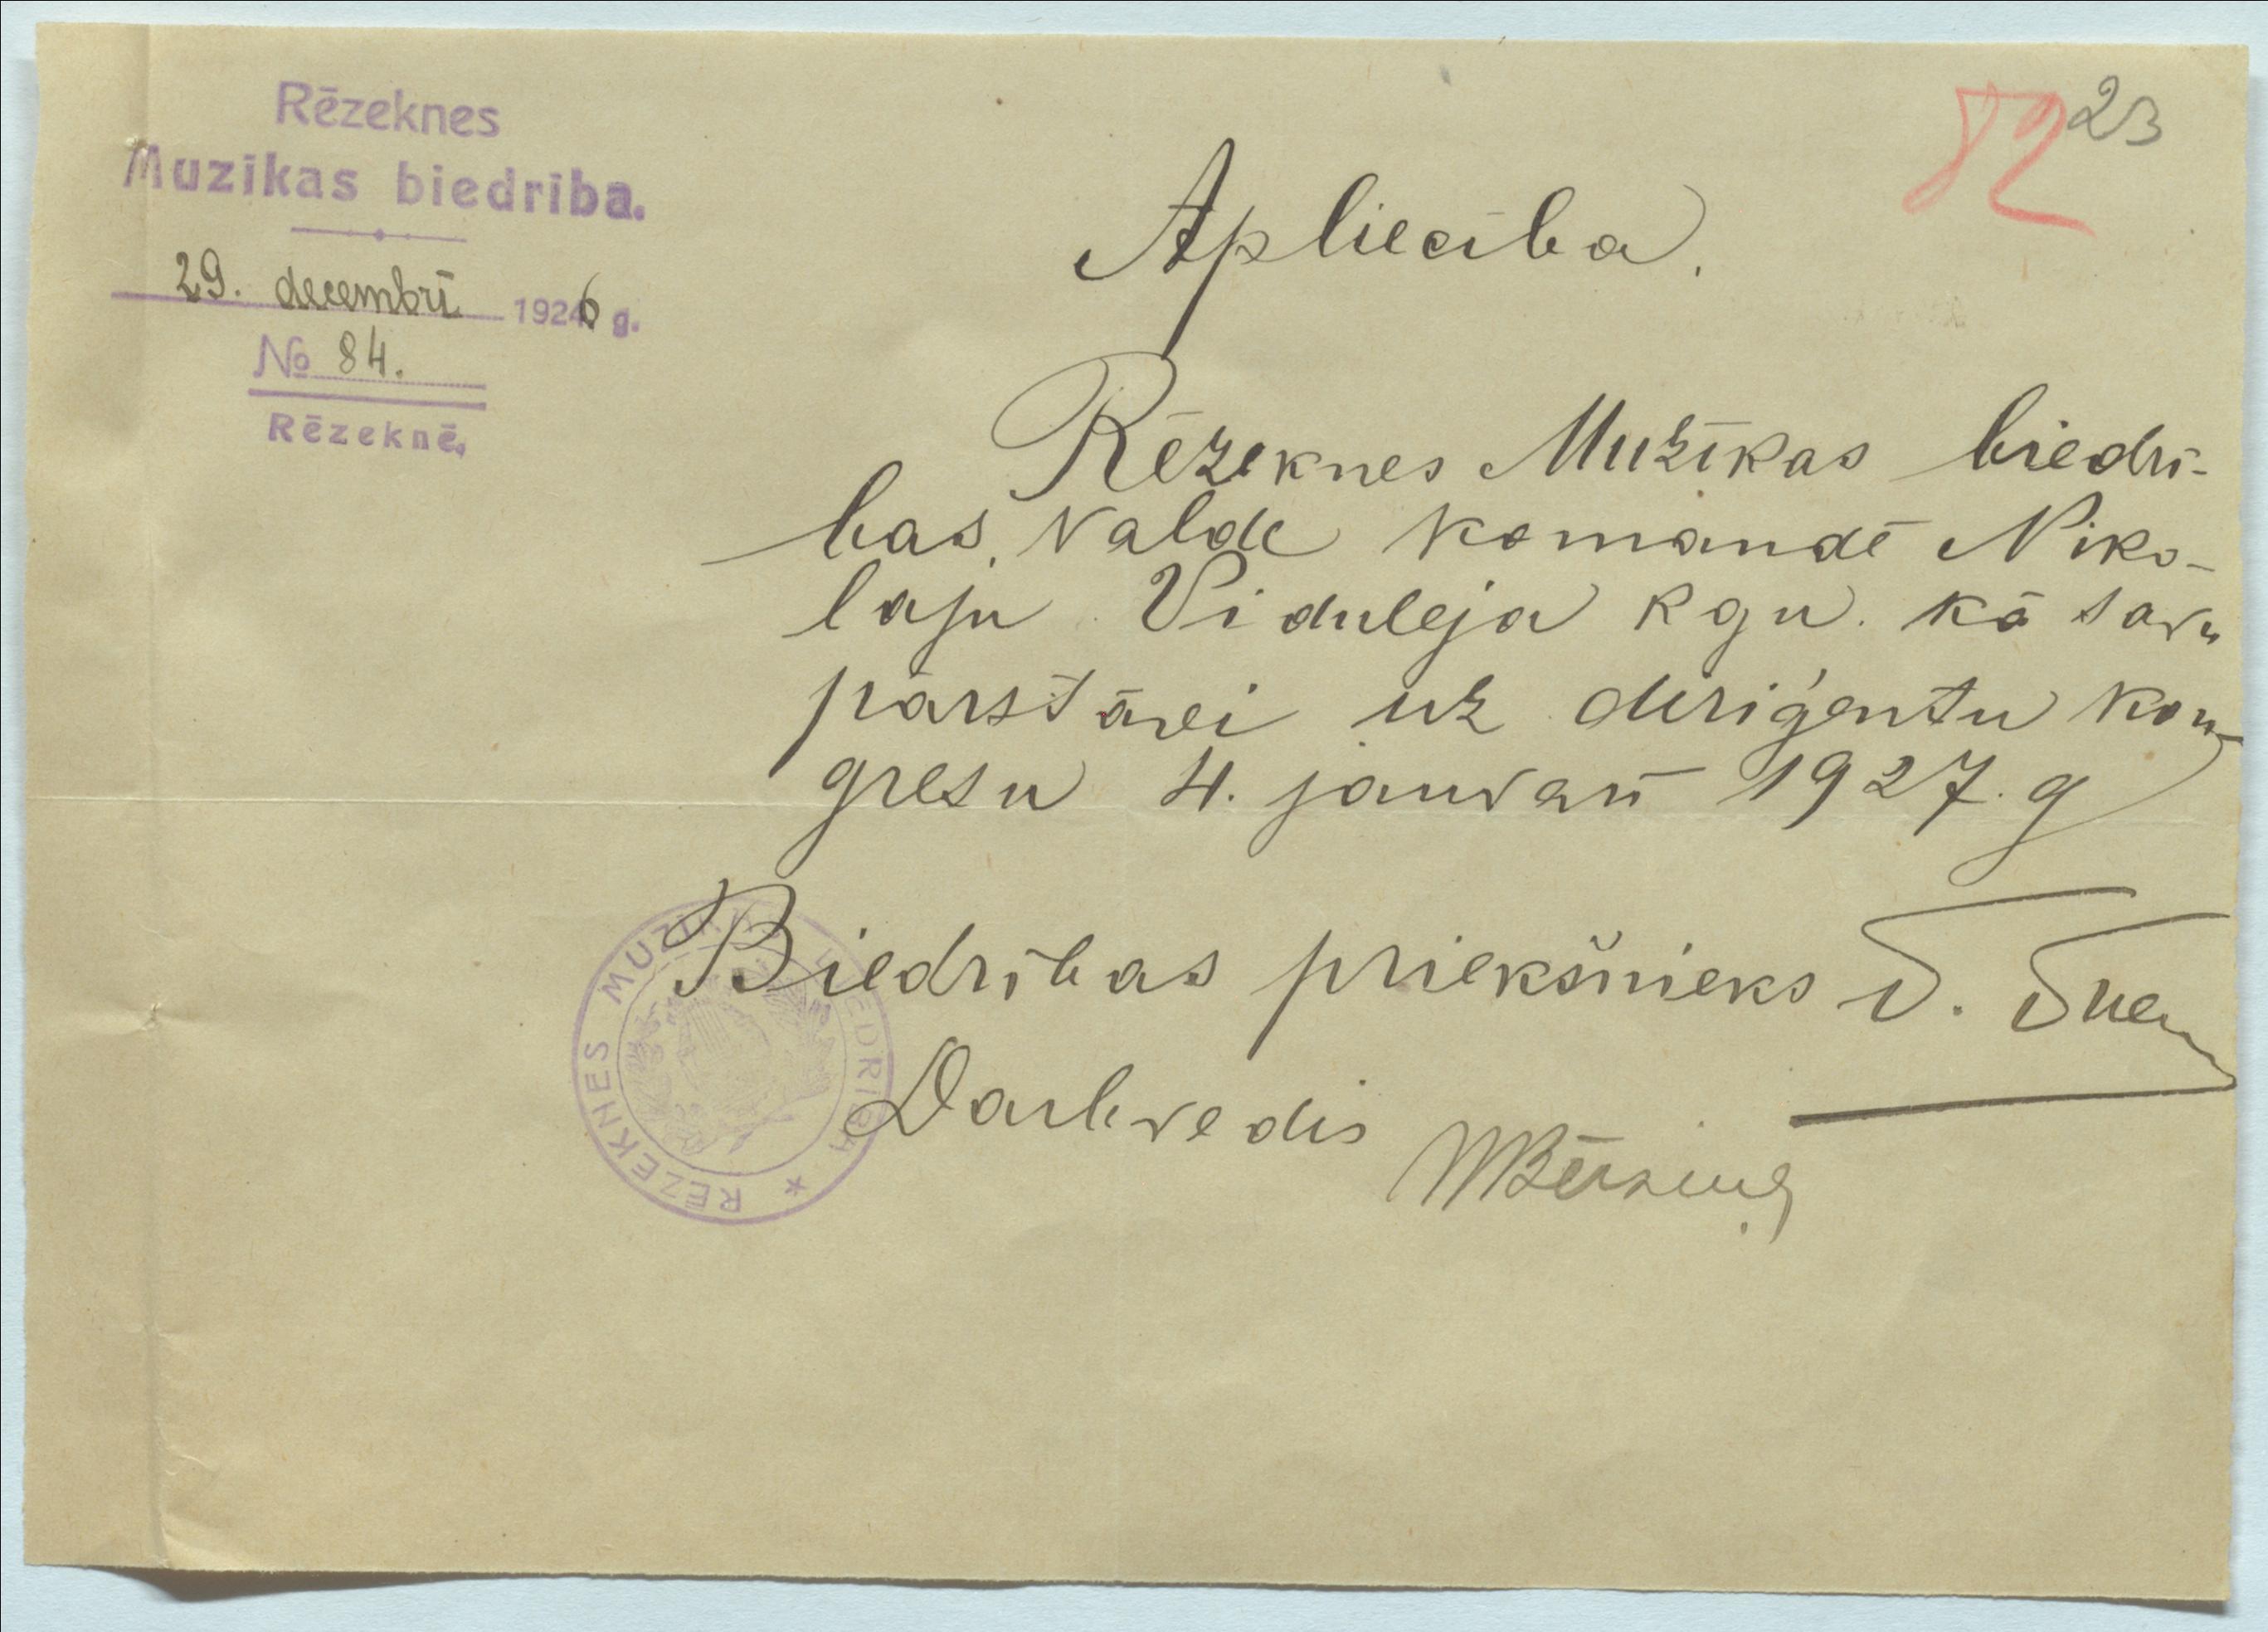 Rēzeknes
Muzikas biedrība.
29. decembrī 1926 g.
№ 84.
Rēzeknē.
82 23
Apliecība.
Rēzeknes Muzīkas biedrī-
bas valde komandē Niko-
laju Viduleja kgu. kā savu
pārstāvi uz diriģentu kon-
gresu 4. janvarī 1927. g
Biedrības priekšnieks
Darbvedis MBērziņš
REZEKNES MUZIKAS BIEDRIBA *